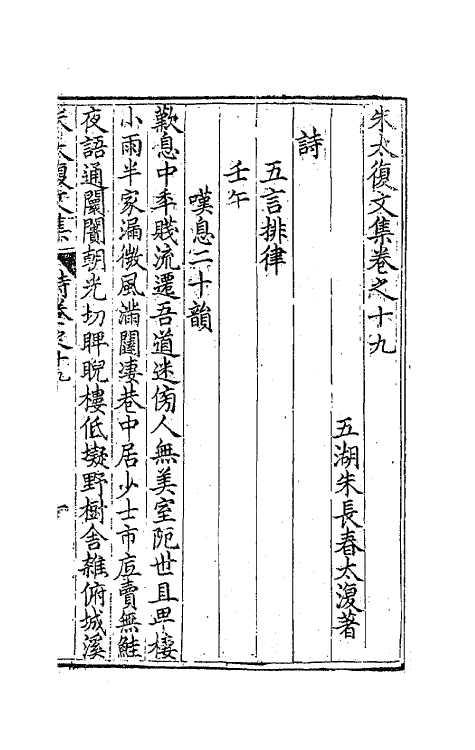 朱太復文集卷之十九
五湖朱長春太復著
詩
五言排律
壬午
嘆息二十韻
歎息中年賤流遷吾道迷傍人無美室阨世且卑棲
小雨半家漏微風滿闥凄巷中居少士市㡳賣無鮭
夜語通闤闠朝光切睥睨樓低擬野樹舍雜俯城溪
朱太復文集 詩卷之十九